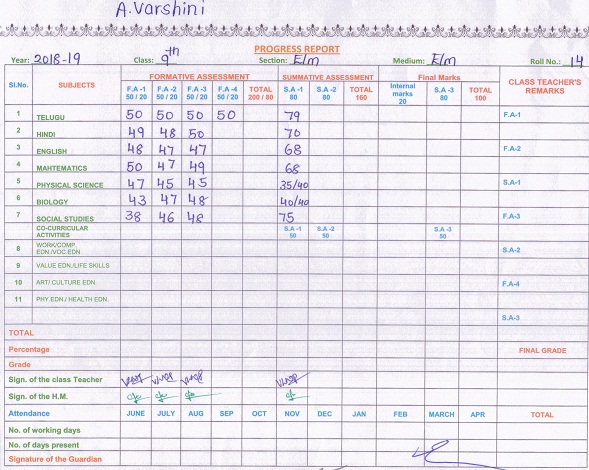 A. Varshini
PROGRESS REPORT
Year: 2018-19 Class: 9th Section: E/m Medium: E/m Roll No.: 14
Sl.No. SUBJECTS FORMATIVE ASSESSMENT SUMMATIVE ASSESSMENT Final Marks CLASS TEACHER'S REMARKS
F.A -1 50 / 20 F.A -2 50 / 20 F.A -3 50 / 20 F.A -4 50 / 20 TOTAL 200 / 80 S.A -1 80 S.A -2 80 TOTAL 160 Internal marks 20 S.A -3 80 TOTAL 100
1 TELUGU 50 50 50 50 79 F.A-1
2 HINDI 49 48 50 70
3 ENGLISH 48 47 47 68 F.A-2
4 MAHTEMATICS 50 47 49 68
5 PHYSICAL SCIENCE 47 45 45 35/40 S.A-1
6 BIOLOGY 43 47 48 40/40
7 SOCIAL STUDIES 38 46 48 75 F.A-3
CO-CURRICULAR ACTIVITIES S.A -1 50 S.A -2 50 S.A -3 50
8 WORK/COMP. EDN./VOC.EDN S.A-2
9 VALUE EDN./LIFE SKILLS
10 ART/ CULTURE EDN. F.A-4
11 PHY.EDN./ HEALTH EDN.
S.A-3
TOTAL
Percentage FINAL GRADE
Grade
Sign. of the class Teacher
Sign. of the H.M.
Attendance JUNE JULY AUG SEP OCT NOV DEC JAN FEB MARCH APR TOTAL
No. of working days
No. of days present
Signature of the Guardian